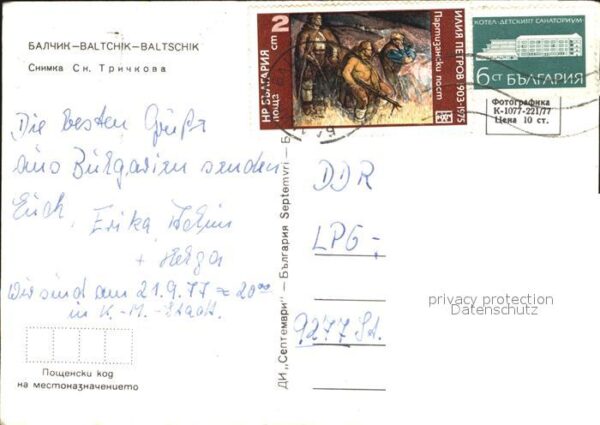 БАЛЧИК—BALTCHIK—BALTSCHIK
Снимка Сн. Тричкова
Die besten Grüße
aus Bulgarien senden
Euch,
Erika
+ Helga
Wir sind am 21.9.77 = 20⁰⁰
in K.-M.-Stadt.
Пощенски код
на местоназначението
ДИ „Септември" — България Septemvri — Б
НР БЪЛГАРИЯ
2 ст
поща
ИЛИЯ ПЕТРОВ 1903-1975
Партизански пост
КОТЕЛ·ДЕТСКИЯТ САНАТОРИУМ
6 СТ БЪЛГАРИЯ
Фотографика
К-1077-221/77
Цена 10 ст.
DDR
LPG -
9277 St.
privacy protection
Datenschutz